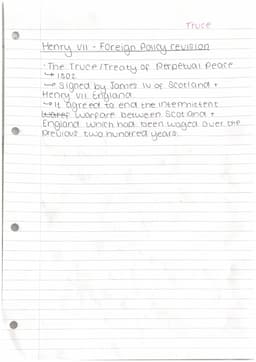 Truce
Henry VII - Foreign Policy revision
· The Truce/Treaty of Perpetual Peace
↳ 1502
→ Signed by James IV of Scotland +
Henry VII England.
→ It agreed to end the intermittent
warfare between Scotland +
England which had been waged over the
previous two hundred years.